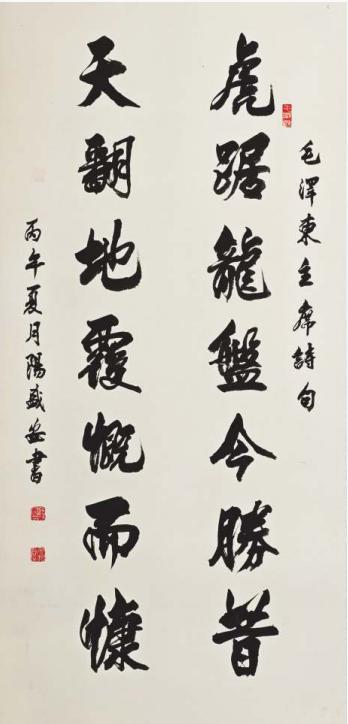 毛澤東主席詩句
虎踞龍盤今勝昔
天翻地覆慨而慷
丙午夏月陽盛書